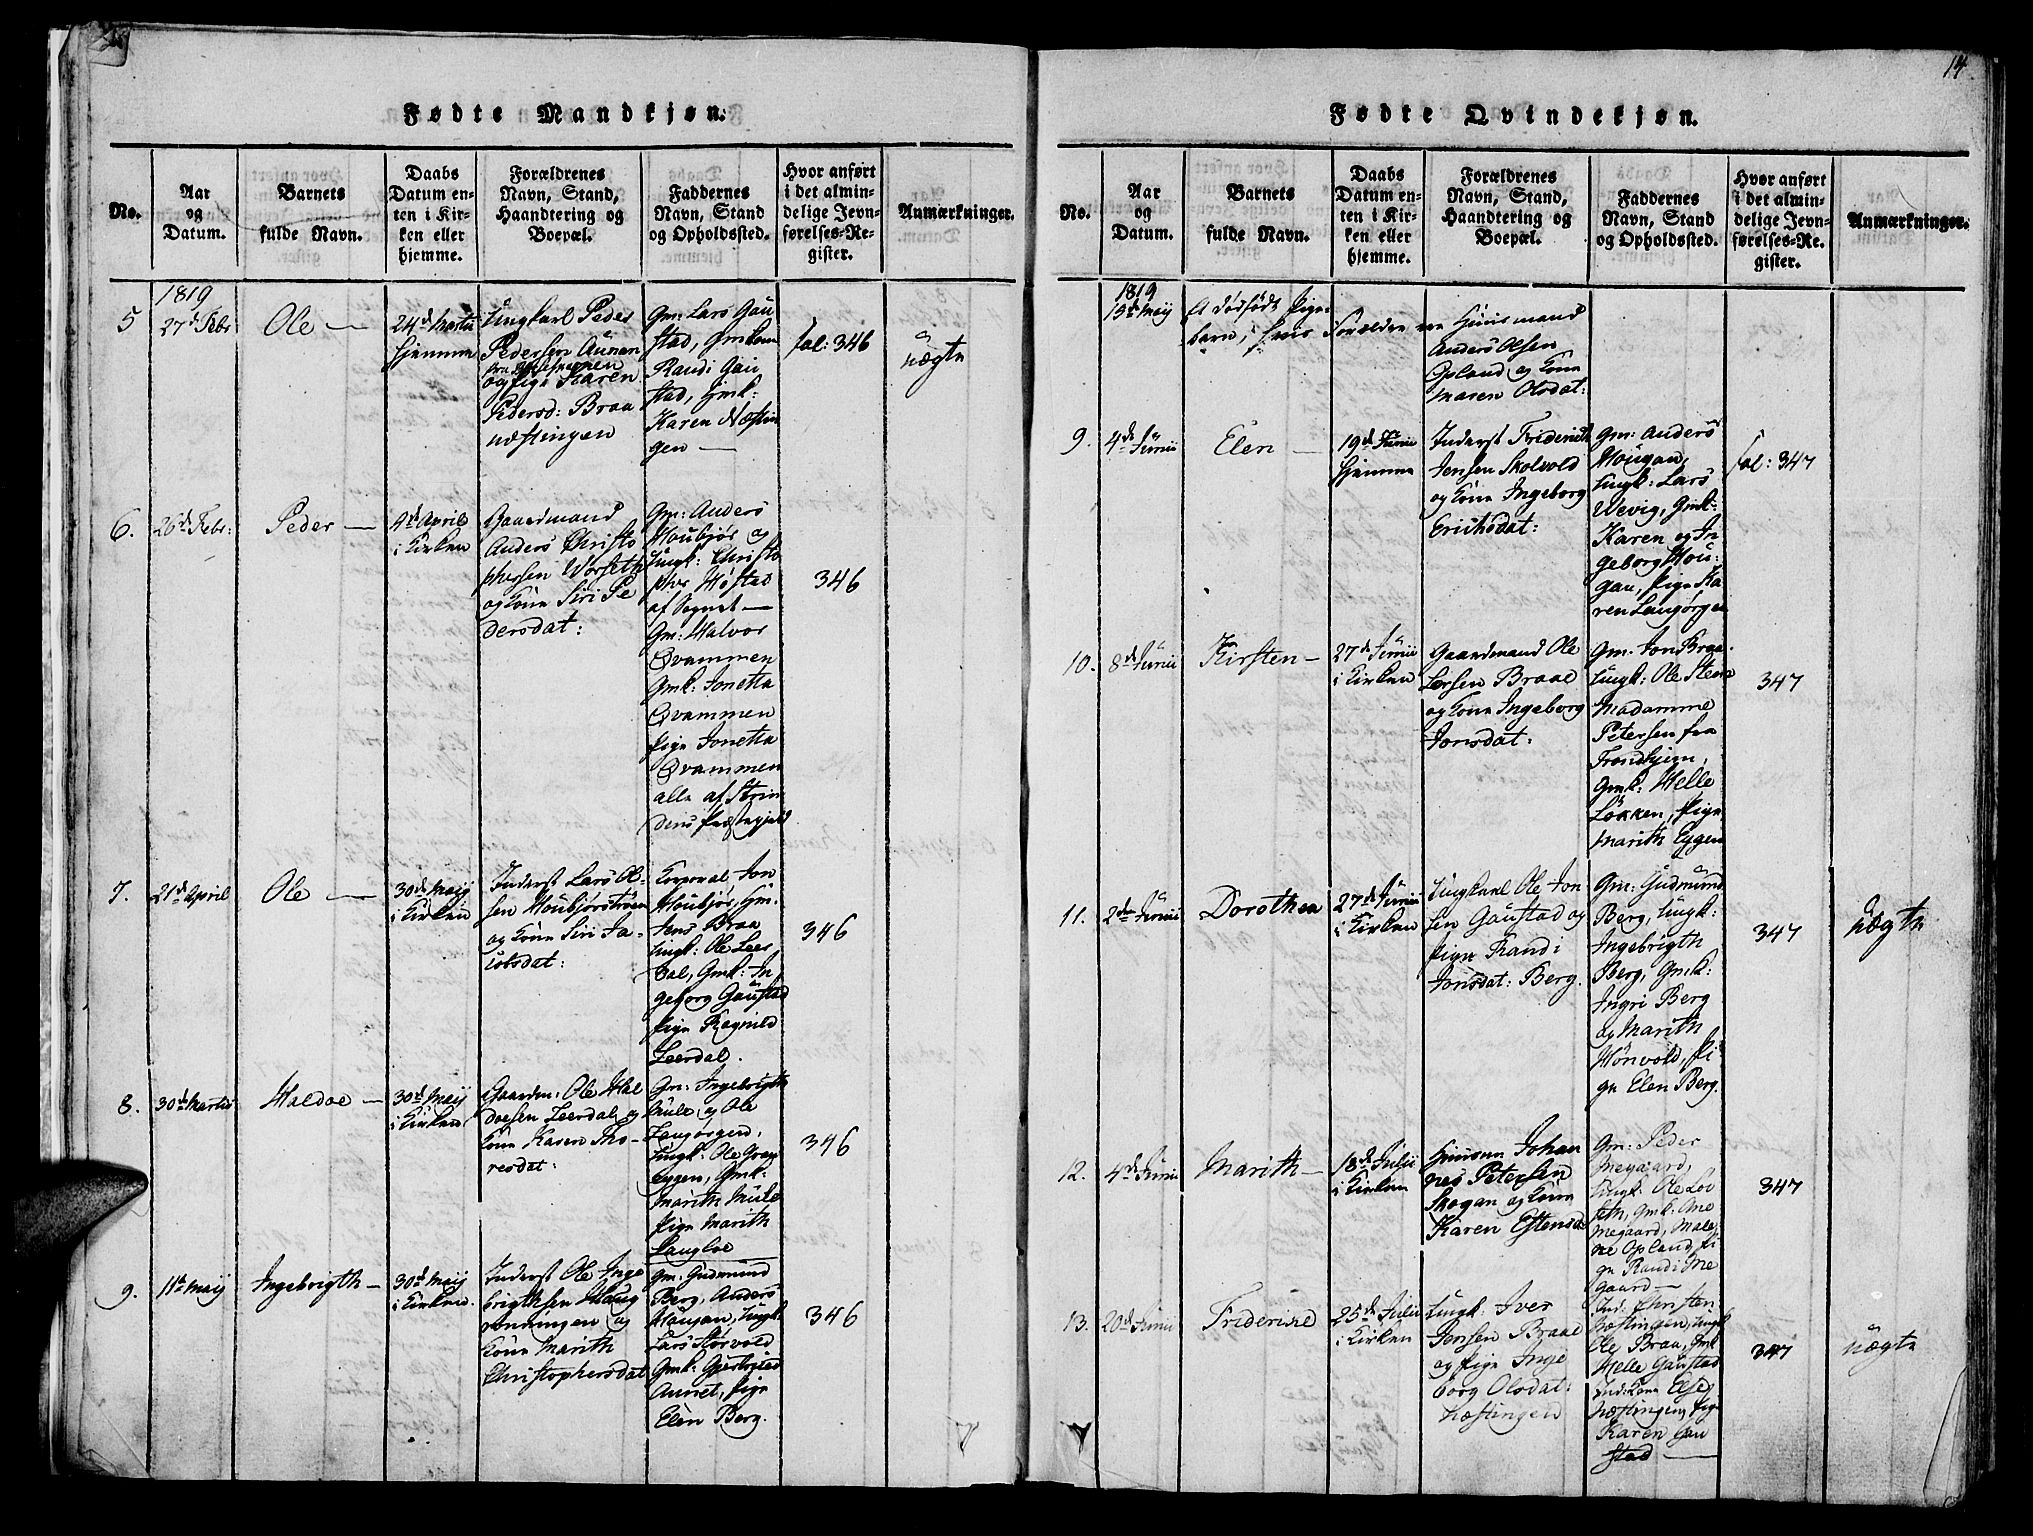 14
Fødte Mandkjøn.
No.
Aar
og
Datum.
Barnets
fulde Navn.
Daabs
Datum en-
ten i Kir-
ken eller
hjemme.
Forældrenes
Navn, Stand,
Haandtering og
Boepæl.
Faddernes
Navn, Stand
og Opholdssted.
Hvor anført
i det almin-
delige Jevn-
førelses-Re-
gister.
Anmærkninger.
5
1819
27de Febr
Ole
24de Martii
hjemme
Ungkarl Peder
Pedersen Aunan
og Pige Karen
Pedersd: Braa
Næstingen
Gm: Lars Gau
stad, Gmkone
Randi Gau
stad, Gmk:
Karen Næstin
gen
fol: 346
uægte
6.
26de Febr:
Peder
4de April
i Kirken
Gaardmand
Anders Christo
phersen Worseth
og Kone Siri Pe
dersdat:
Gm: Anders
Houbjør og
Ungk: Christo
pher Høstad
af Sognet
Gm: Halvor
Qvammen
Gmk: Jonetta
Qvammen
Pige Jonetta
Qvammen
alle af Strin
dens Præstegjeld
346
7.
21de April
Ole
30de Maij
i Kirken
Inderst Lars Ol-
sen Houbjørstrøen
og Kone Siri Ja-
cobsdat:
Korporal Jon
Houbjør, Gm.
Jens Braa
Ungk: Ole Leer
dal, Gmk: In
geborg Gaustad
Pige Ragnild
Leerdal.
346
8.
30te Martii
Haldoe
30te Maij
i Kirken
Gaardm: Ole Hal
doesen Leerdal og
Kone Karen Tho-
resdat:
Gm: Ingebrigth
Mule, og Ole
Langørgen,
Ungk: Ole Graa
eggen, Gmk:
Marith Mule
Pige Marith
Langloe
346
9.
11te Maij
Ingebrigth
30te Maij
i Kirken.
Inderst Ole Inge
brigthsen Haug
rønningen og
Kone Marith
Christophersdat
Gm: Gudmund
Berg, Anders
Hougan, Ungk:
Lars Størvold
Gmk: Gjertrud
Aunet, Pige
Elen Berg.
346
Fødte Qvindekjøn.
No.
Aar
og
Datum.
Barnets
fulde Navn.
Daabs
Datum en-
ten i Kir-
ken eller
hjemme.
Forældrenes
Navn, Stand,
Haandtering og
Boepæl.
Faddernes
Navn, Stand
og Opholdssted.
Hvor anført
i det almin-
delige Jevn-
førelses-Re-
gister.
Anmærkninger.
1819
13de Maij
et dødfødt Pige-
barn, hvis Forældre ere Huusmand
Anders Olsen
Opland og Kone
Maren Olsdat:
9.
4de Junii
Elen
19de Junii
hjemme
Inderst Friderich
Jensen Skolvold
og Kone Ingeborg
Erichsdat:
Gm: Anders
Hougan,
Ungk: Lars
Wevig, Gmk:
Karen og In
geborg Hou
gan, Pige Ka
ren Langørgen
fol: 347
10.
8de Junii
Kirsten
27de Junii
i Kirken
Gaardmand Ole
Larsen Braae
og Kone Ingeborg
Jonsdat:
Gm: Jon Braa
Ungk: Ole Steen
Madamme
Petersen fra
Trondhjem,
Gmk: Helle
Løkken, Pige
Marith Eggen
347
11.
2den Junii
Dorothea
27de Junii
i Kirken
Ungkarl Ole Jon
sen Gaustad og
Pige Randi
Jonsdat: Berg.
Gm: Gudmund
Berg, Ungk:
Ingebrigth
Berg, Gmk:
Ingri Berg
og Marith
Hønvold, Pi
ge Elen Berg.
347
uægte
12.
4de Junii
Marith
18de Julii
i Kirken
Huusm Johan
nes Petersen
Skogan og Kone
Karen Estensd:
Gm: Peder
Megaard,
Ungk: Ole Lov
seth, Gmk: Ane
Megaard, Male
ne Opland, Pi
ge Randi Me
gaard
347
13.
20de Junii
Friderica
25de Julii
i Kirken
Ungk: Iver
Jensen Braae
og Pige Inge
borg Olsdat:
Næstingen
Ind: Christen
Næstingen, Ungk
Ole Braa, Gmk
Helle Gaustad
Ind: Kone Else
Næstingen, Pige
Karen Gau
stad
347
uægte